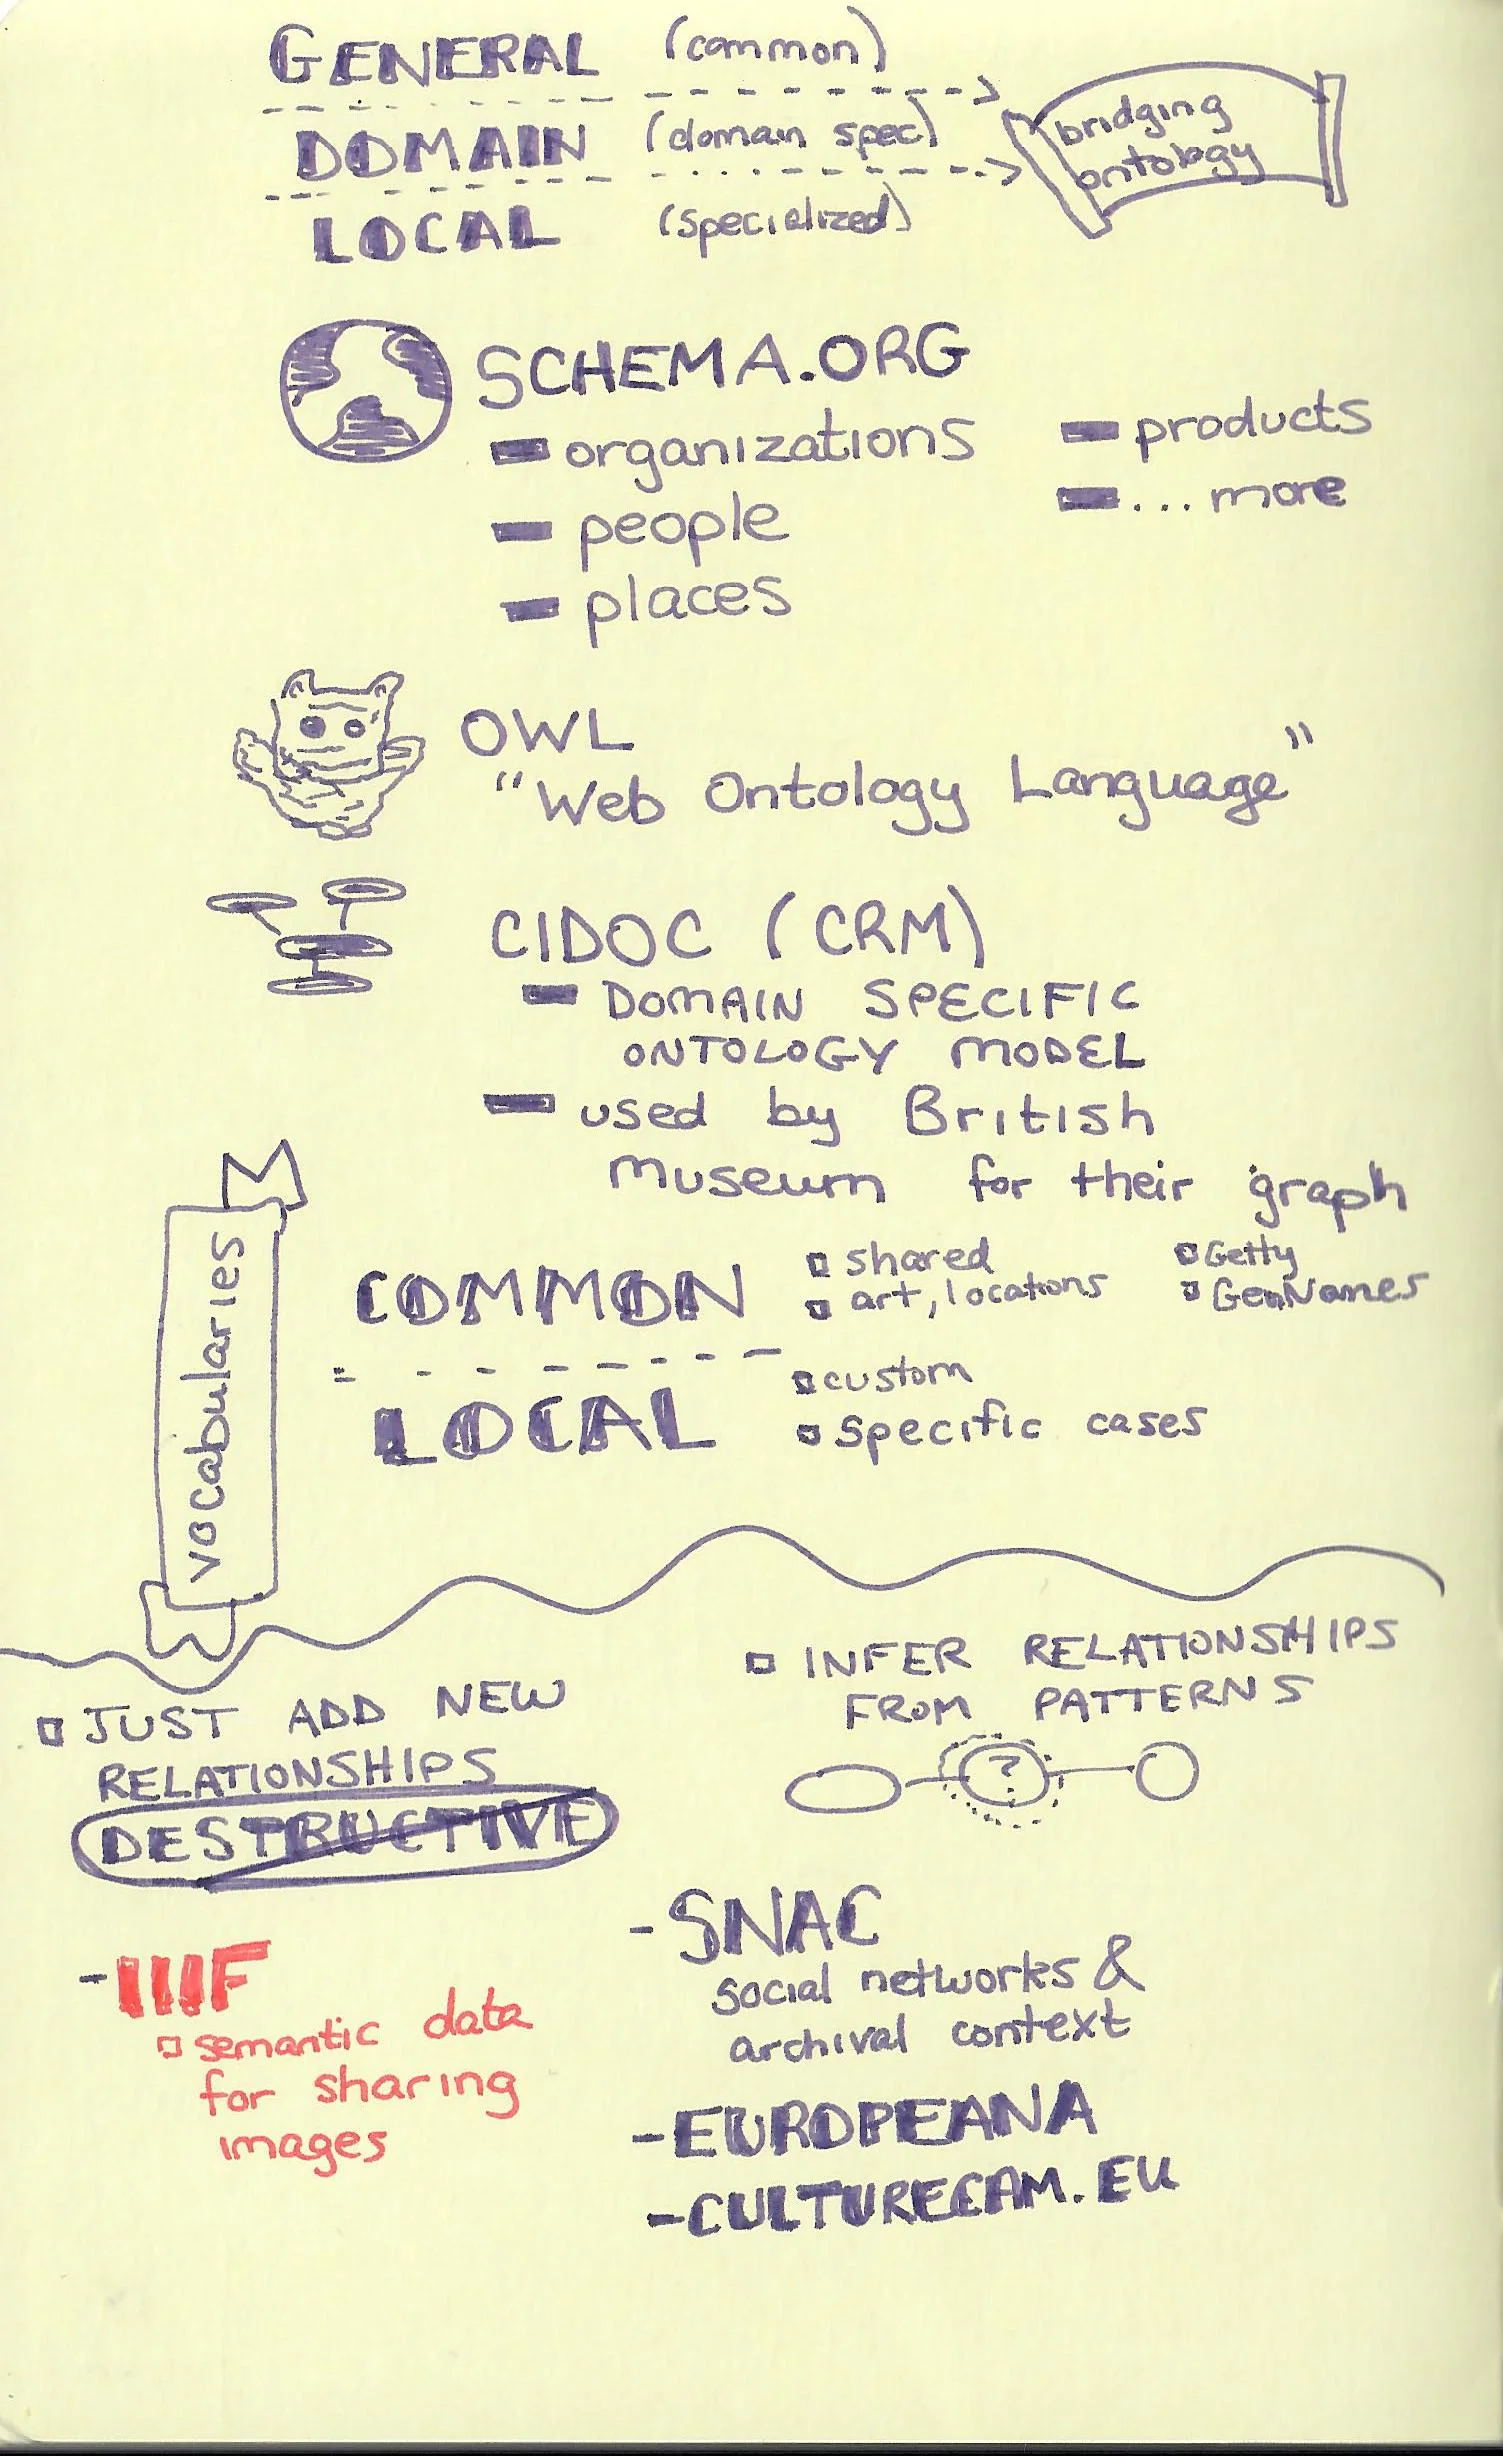 GENERAL (common)
DOMAIN (domain spec)
LOCAL (specialized)
bridging
ontology
SCHEMA.ORG
organizations
people
places
products
... more
OWL
"Web Ontology Language"
CIDOC (CRM)
DOMAIN SPECIFIC
ONTOLOGY MODEL
used by British
museum for their graph
vocabularies
COMMON
shared
art, locations
Getty
GeoNames
LOCAL
custom
specific cases
JUST ADD NEW
RELATIONSHIPS
DESTRUCTIVE
INFER RELATIONSHIPS
FROM PATTERNS
?
- IIIF
semantic data
for sharing
images
- SNAC
social networks &
archival context
- EUROPEANA
- CULTURECAM.EU